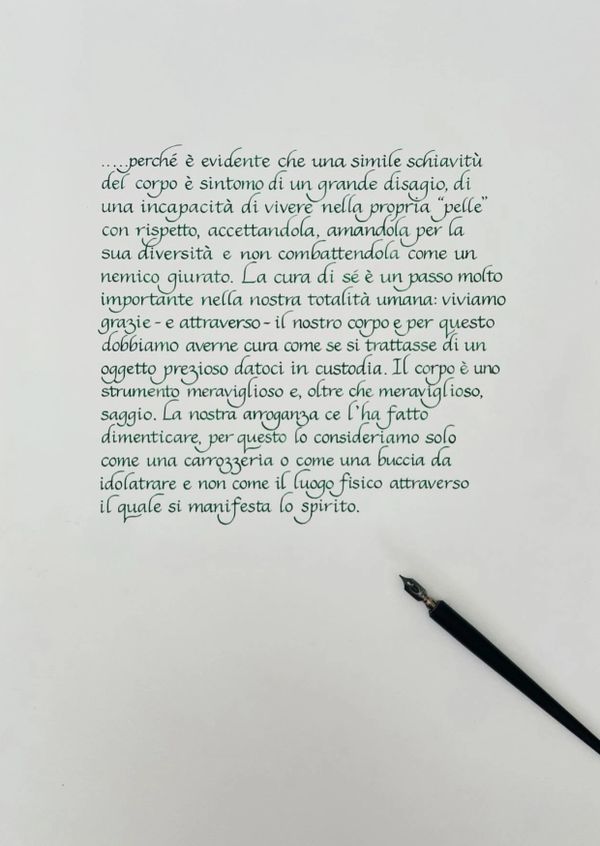 .....perché è evidente che una simile schiavitù
del corpo è sintomo di un grande disagio, di
una incapacità di vivere nella propria “pelle”
con rispetto, accettandola, amandola per la
sua diversità e non combattendola come un
nemico giurato. La cura di sé è un passo molto
importante nella nostra totalità umana: viviamo
grazie - e attraverso - il nostro corpo e per questo
dobbiamo averne cura come se si trattasse di un
oggetto prezioso datoci in custodia. Il corpo è uno
strumento meraviglioso e, oltre che meraviglioso,
saggio. La nostra arroganza ce l'ha fatto
dimenticare, per questo lo consideriamo solo
come una carrozzeria o come una buccia da
idolatrare e non come il luogo fisico attraverso
il quale si manifesta lo spirito.